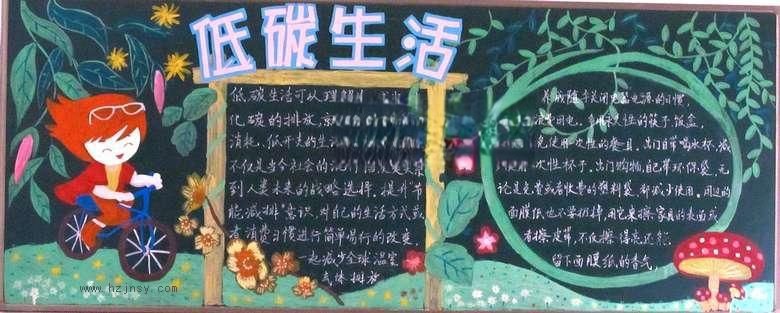 低碳生活
低碳生活可以理解
化碳的排放
消耗、低开支的生活
不仅是当今社会的流行
到人类未来的战略选择。提升“节
能减排”意识,对自己的生活方式或
者消费习惯进行简单易行的改变,
一起减少全球温室
气体排放
养成随手关闭电器电源的习惯,
浪费用电。 的筷子饭盒,
免使用一次性的餐具。出门自带喝水杯,减
一次性杯子。出门购物,自己带环保袋,无
论是免费或者收费的塑料袋,都减少使用。用过的
面膜纸也不要扔掉,用它来擦家具的表面或
者擦皮带,不仅擦得亮还能
留下面膜纸的香气。
www.hzjnsy.com